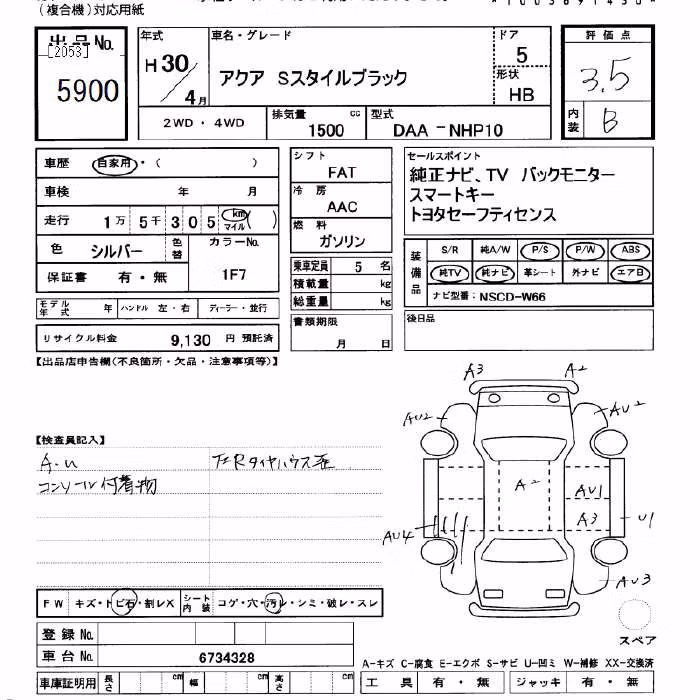 (複合機)対応用紙
出品No.
[2053]
5900
年式
H30/4月
車名・グレード
アクア Sスタイルブラック
ドア
5
形状
HB
評価点
3.5
内装
B
2WD・4WD
排気量
1500 cc
型式
DAA－NHP10
車歴 自家用・( )
車検 年 月
走行 1万 5千 305 km マイル ( )
色 シルバー
色替
カラーNo.
1F7
保証書 有・無
シフト
FAT
冷房
AAC
燃料
ガソリン
セールスポイント
純正ナビ、TV バックモニター
スマートキー
トヨタセーフティセンス
装備品
S/R 純A/W P/S P/W ABS
純TV 純ナビ 革シート 外ナビ エアB
ナビ型番: NSCD-W66
乗車定員 5 名
積載量 kg
総重量 kg
モデル年式 年 ハンドル 左・右 ディーラー・並行
リサイクル料金 9,130 円 預託済
書類期限
月 日
後日品
【出品店申告欄(不良箇所・欠品・注意事項等)】
A3 A2
AU2 AU2
【検査員記入】
A・U
コンソール付着物
A2
AU1
A3
U1
AU4
AU3
スペア
FW キズ・トビ石・割レX シート内装 コゲ・穴・汚レ・シミ・破レ・スレ
登録No.
車台No. 6734328
A-キズ C-腐食 E-エクボ S-サビ U-凹ミ W-補修 XX-交換済
車庫証明用 長さ cm 幅 cm 高さ cm
工具 有・無 ジャッキ 有・無